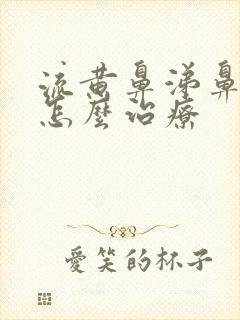 流黄鼻涕鼻
怎麼治療
愛笑的杯子